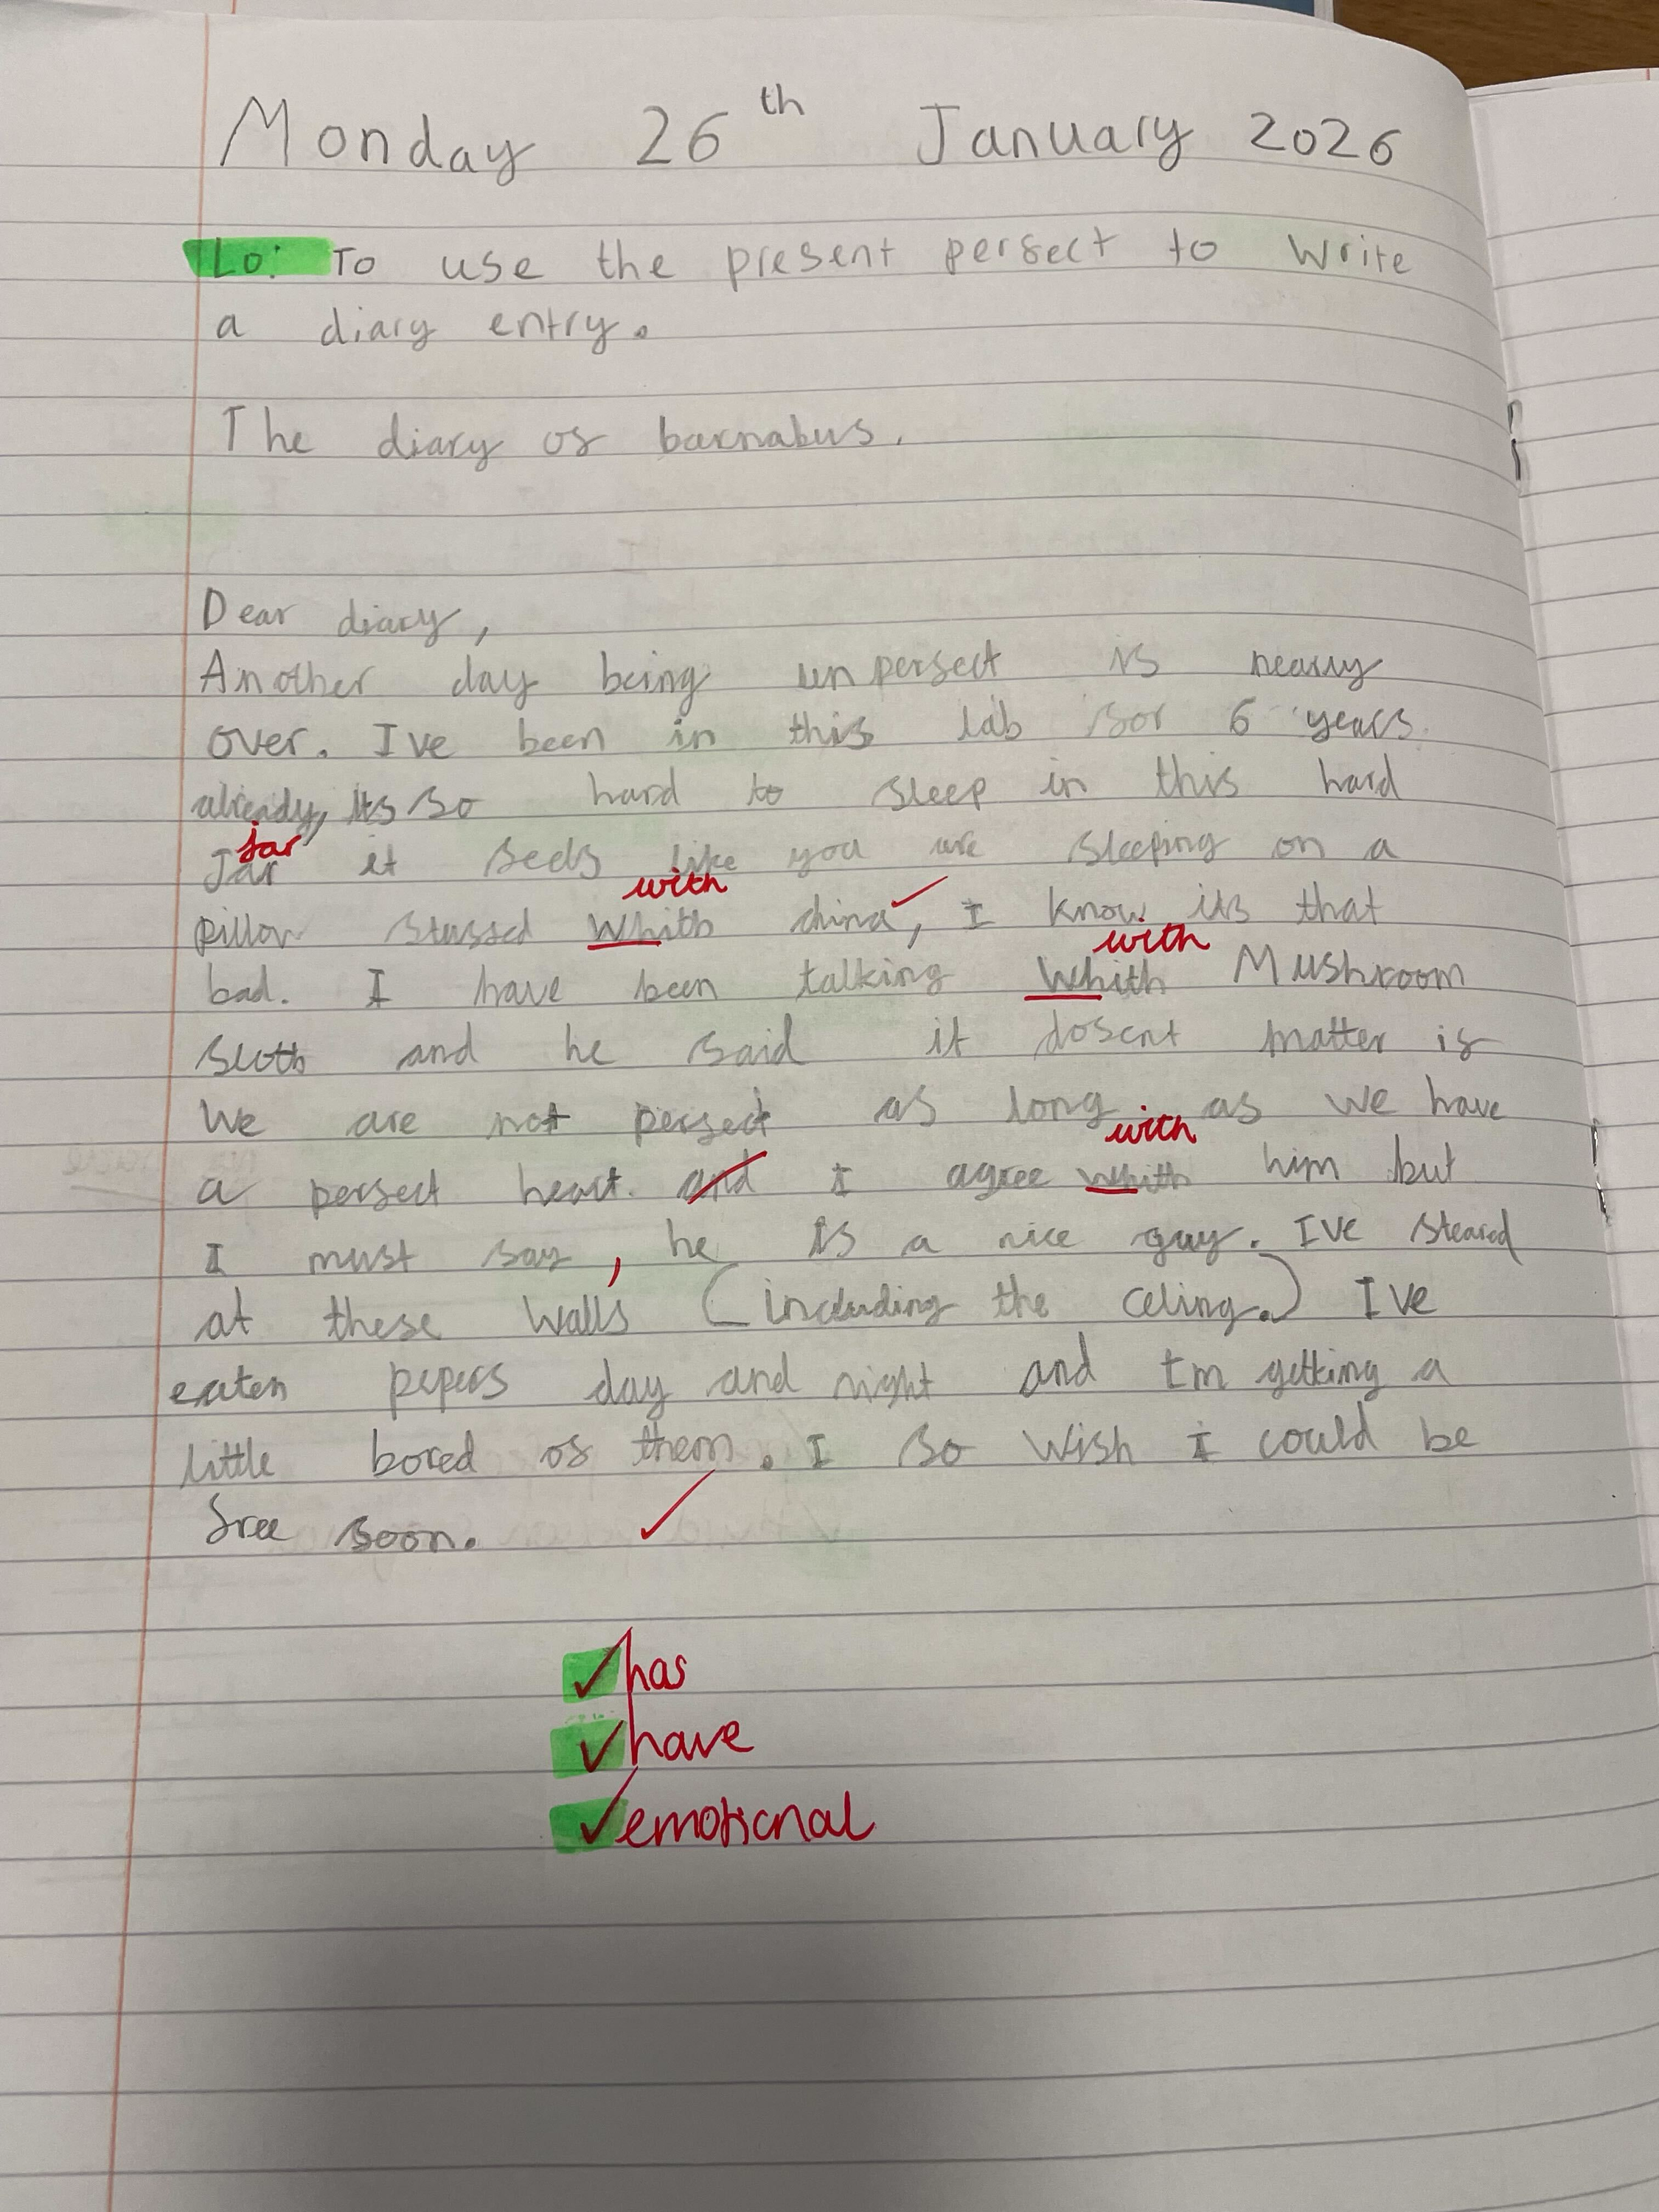 Monday 26th January 2026
Lo: To use the present perfect to write
a diary entry.
The diary of barnabus.
Dear diary,
Another day being unperfect is nearly
over. I've been in this lab for 6 years
already, its so hard to sleep in this hard
jar
Jar it feels like you are sleeping on a
with
pillow stuffed whith china, I know its that
with
bad. I have been talking whith Mushroom
sloth and he said it dosent matter if
we are not perfect as long as we have
with
a perfect heart. and I agree whith him but
I must say, he is a nice guy. I've steared
at these walls (including the celing.) I've
eaten pepers day and night and I'm getting a
little bored of them. I so wish I could be
free soon.
has
have
emotional